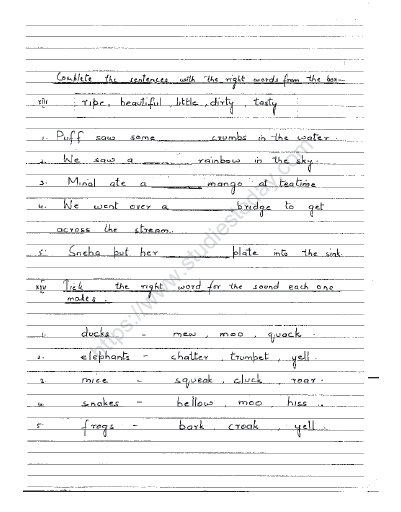 Complete the sentences with the right words from the box-
XIII ripe, beautiful, little, dirty, tasty
1. Puff saw some ________ crumbs in the water.
2. We saw a ________ rainbow in the sky.
3. Minal ate a ________ mango at teatime
4. We went over a ________ bridge to get
across the stream.
5. Sneha put her ________ plate into the sink.
XIV Tick the right word for the sound each one
makes.
1. ducks - mew, moo, quack.
2. elephants - chatter, trumpet, yell.
3. mice - squeak, cluck, roar.
4. snakes - bellow, moo, hiss.
5. frogs - bark, croak, yell.
https://www.studiestoday.com